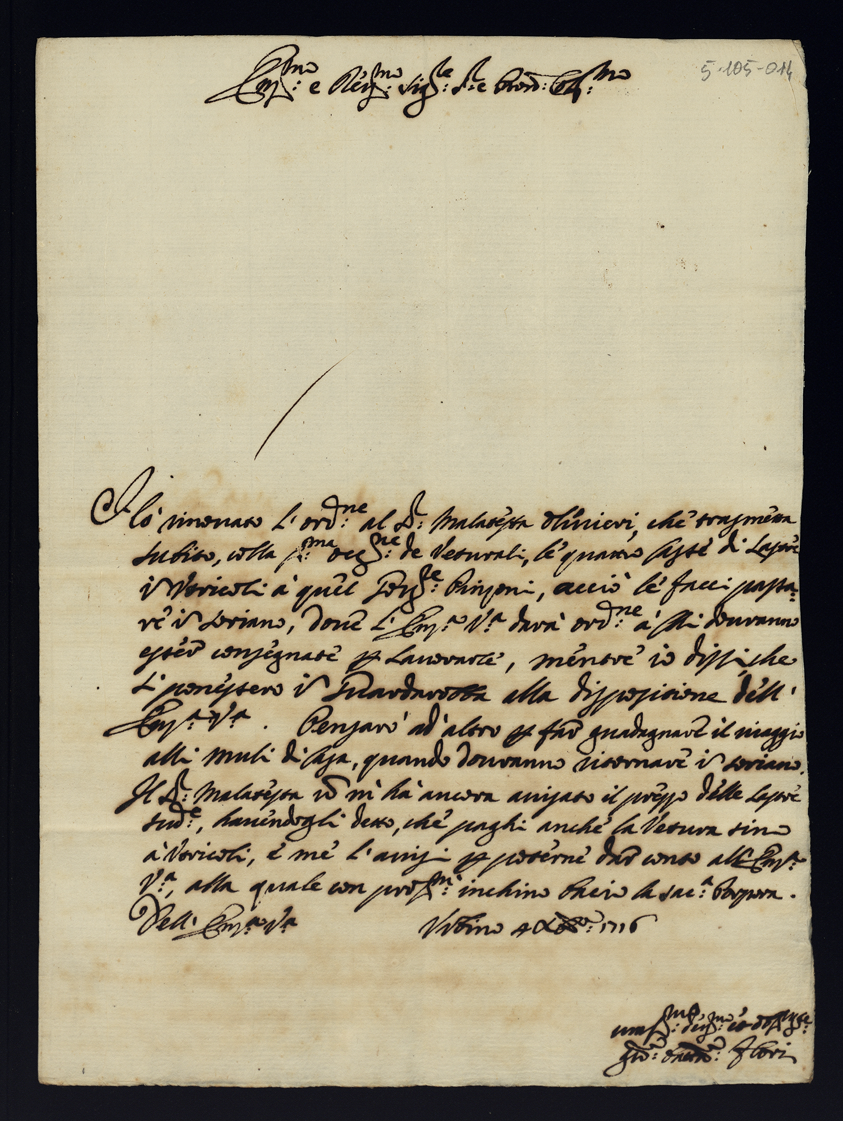 5-105-014
Em.mo e Rev.mo Sig.re S.re e Pron: Col.mo
Hò rinovato l'ord.ne al S.r Malatesta Olivieri, che trasmetta
subito, colla p.ma occ.ne de Veturali, le quattro Casse di Lastre
in Otricoli à quel Pinzoni, acciò le facci passa-
re in Soriano, dove l'Em.za V.ra darà ord.ne à chi dovranno
esser consegnate p lavorarle, mentre io dissi, che
si ponessero in Guardarobba alla disposizione dell'
Em.za V.ra. Pensarò ad altro p far guadagnare il viaggio
alli muli di Casa, quando dovranno ritornare in Soriano.
Il S.r Malatesta nò m'hà ancora avisato il prezzo delle Lastre
sud.e, havendogli detto, che paghi anche la Vetura sino
à Otricoli, e me l'avisi p poterne dar conto all'Em.za
V.ra, alla quale con prof.mo inchino bacio la sac.a Porpora.
Dell'Em.za V.ra Urbino 4 1716